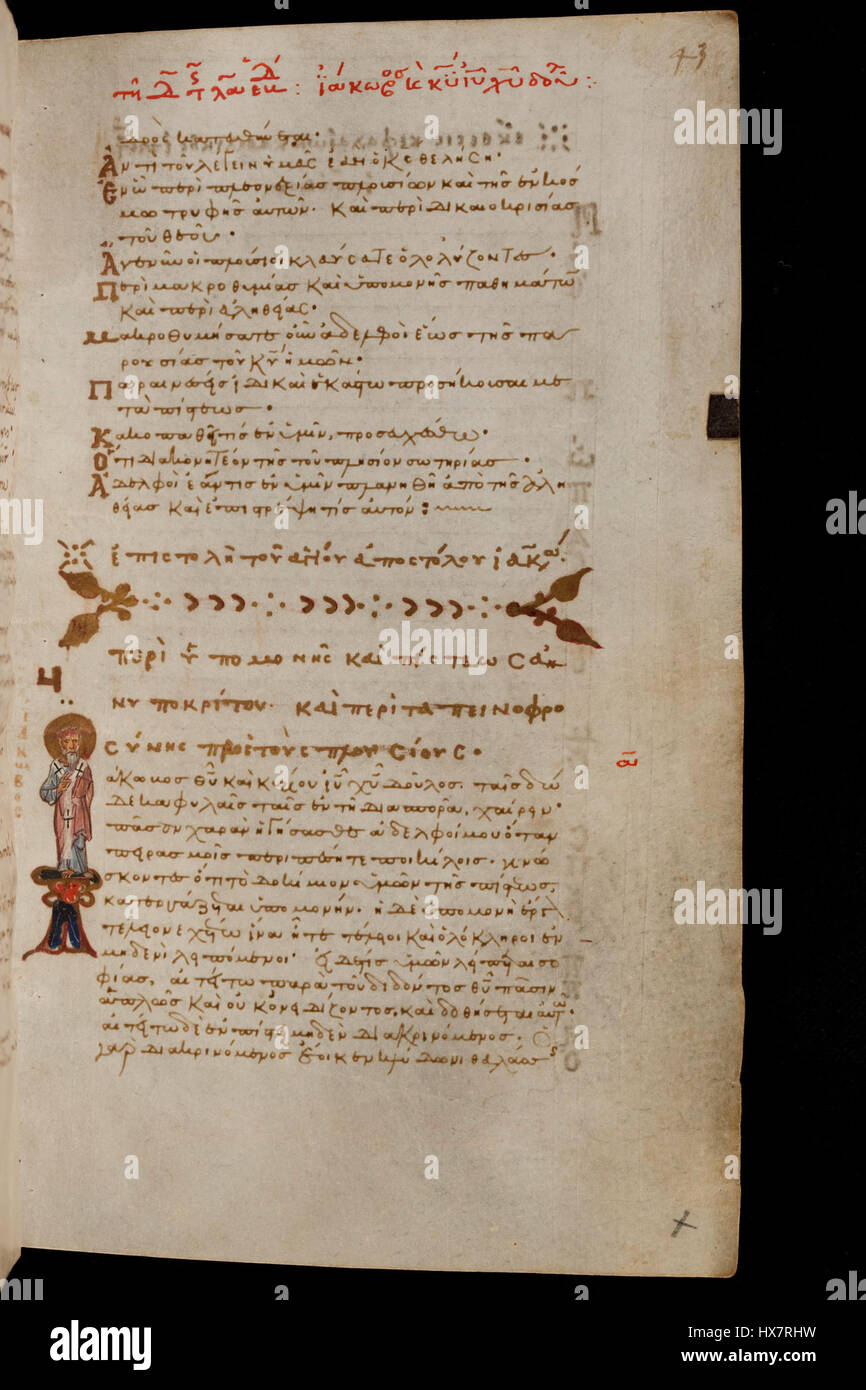 43
δρος κατευθύνεται·
Ἀντὶ τοῦ λέγειν ὑμᾶς ἐὰν ὁ κς θελήση·
Ἐν ᾧ περὶ πλεονεξίας πλουσίων καὶ τῆς ἐν κόσ
μω τρυφῆς αὐτῶν· καὶ περὶ δικαιοκρισίας
τοῦ θεοῦ·
Ἄγε νῦν οἱ πλούσιοι κλαύσατε ὀλολύζοντες·
Περὶ μακροθυμίας καὶ ὑπομονῆς παθημάτω
καὶ περὶ ἀληθείας·
Μακροθυμήσατε οὖν ἀδελφοὶ ἕως τῆς πα
ρουσίας τοῦ κυ ἡμῶν·
τῶ πίστεως·
Κακοπαθεῖ τίς ἐν ὑμῖν, προσευχέσθω·
Ὅτι διακονητέον τῆς τοῦ πλησίον σωτηρίας·
Ἀδελφοὶ ἐάν τις ἐν ὑμῖν πλανηθῆ ἀπὸ τῆς ἀλη
θείας καὶ ἐπιστρέψη τίς αὐτόν:
ἐπιστολὴ τοῦ ἁγίου ἀποστόλου ἰακώ
περὶ ὑπομονῆς καὶ πίστεως ἀ
νυποκρίτου· καὶ περὶ ταπεινοφρο
σύνης πρὸς τοὺς πλουσίους·
άκωβος θυ καὶ κυρίου ιυ χυ δοῦλος, ταῖς δώ
δεκα φυλαῖς ταῖς ἐν τῆ διασπορᾶ, χαίρειν·
πᾶσαν χαρὰν ἡγήσασθε ἀδελφοί μου ὅταν
πειρασμοῖς περιπέσητε ποικίλοις· γινώ
σκοντες ὅτι τὸ δοκίμιον ὑμῶν τῆς πίστεως,
κατεργάζεται ὑπομονήν· ἡ δὲ ὑπομονὴ ἔργ
τέλειον ἐχέτω ἵνα ἦτε τέλειοι καὶ ὁλόκληροι ἐν
μηδενὶ λειπόμενοι· εἰ δέ τις ὑμῶν λείπεται σο
φίας, αἰτείτω παρὰ τοῦ διδόντος θυ πᾶσιν
ἁπλῶς καὶ οὐκ ὀνειδίζοντος, καὶ δοθήσεται αὐτῶ·
αἰτείτω δὲ ἐν πίστει μηδὲν διακρινόμενος· ὁ
γὰρ διακρινόμενος ἔοικεν κλύδωνι θαλάσσ
α
alamy stock photo
alamy
Image ID: HX7RHW
www.alamy.com